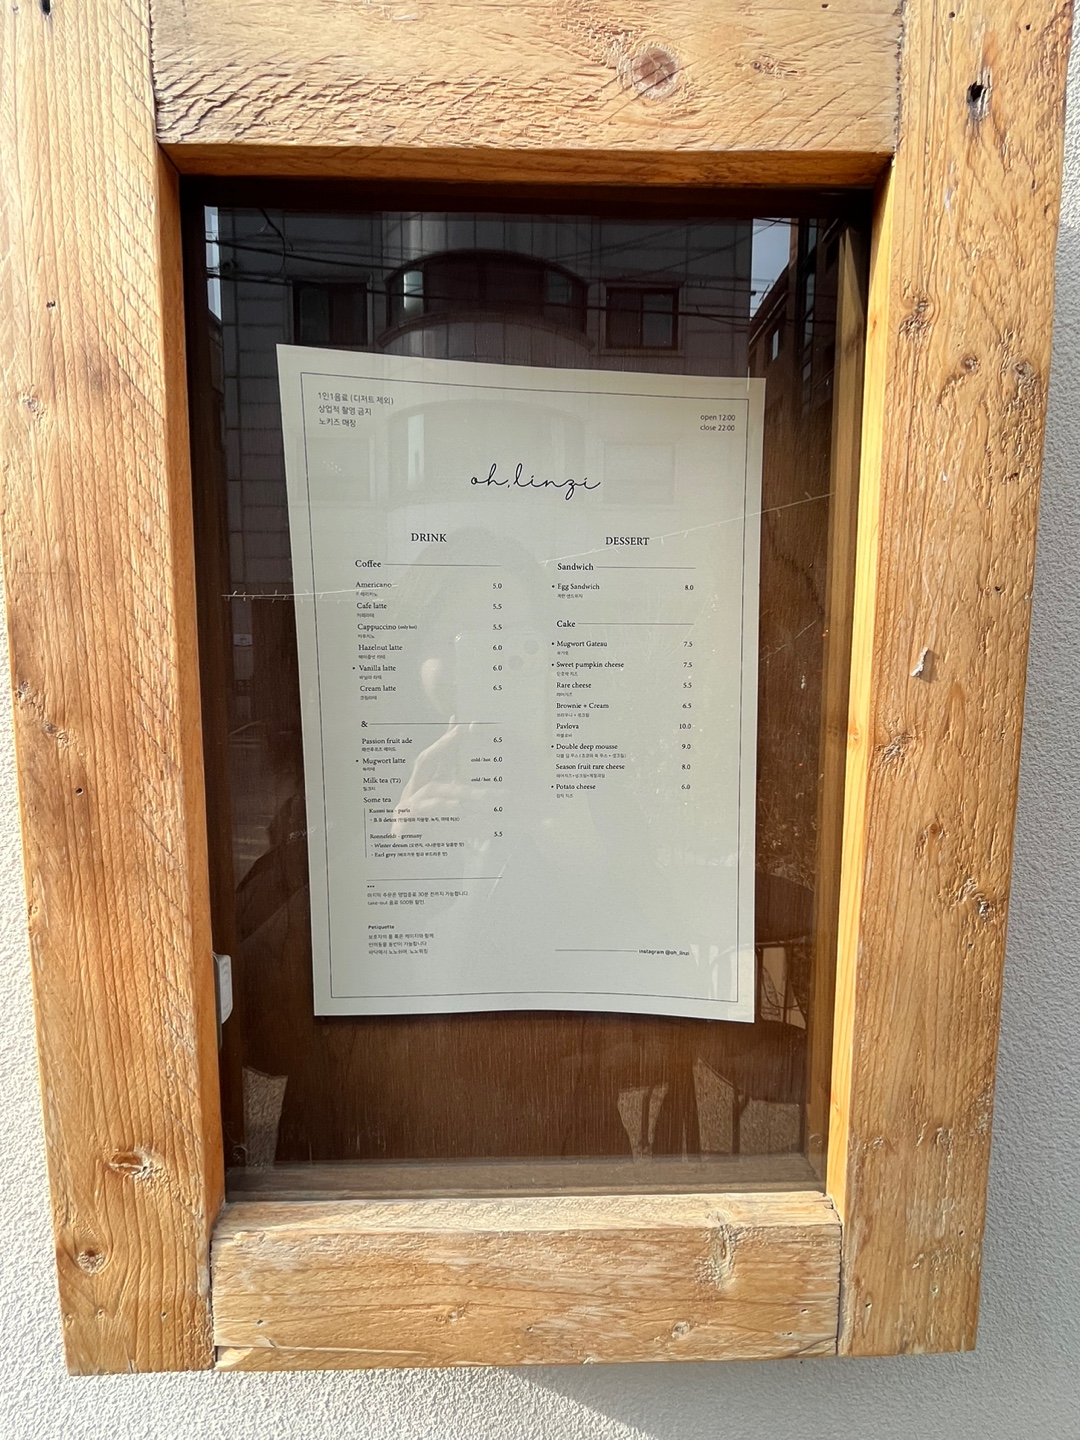 1인1음료 (디저트 제외)
상업적 촬영 금지
노키즈 매장
open 12:00
close 22:00
oh, linzi
DRINK
Coffee
Americano 5.0
아메리카노
Cafe latte 5.5
카페라떼
Cappuccino (only hot) 5.5
카푸치노
Hazelnut latte 6.0
헤이즐넛 라떼
• Vanilla latte 6.0
바닐라 라떼
Cream latte 6.5
크림라떼
&
Passion fruit ade 6.5
패션후르츠 에이드
• Mugwort latte cold / hot 6.0
쑥라떼
Milk tea (T2) cold / hot 6.0
밀크티
Some tea
Kusmi tea - paris 6.0
- B.B detox
Ronnefeldt - germany 5.5
- Winter dream
- Earl grey
•••
마지막 주문은 영업종료 30분 전까지 가능합니다
take-out 음료 500원 할인
Petiquette
보호자의 품 혹은 케이지와 함께
반려동물 동반이 가능합니다
DESSERT
Sandwich
• Egg Sandwich 8.0
계란 샌드위치
Cake
• Mugwort Gateau 7.5
쑥갸또
• Sweet pumpkin cheese 7.5
단호박 치즈
Rare cheese 5.5
레어치즈
Brownie + Cream 6.5
브라우니 + 생크림
Pavlova 10.0
파블로바
• Double deep mousse 9.0
Season fruit rare cheese 8.0
레어치즈+생크림+계절과일
• Potato cheese 6.0
감자 치즈
instagram @oh_linzi